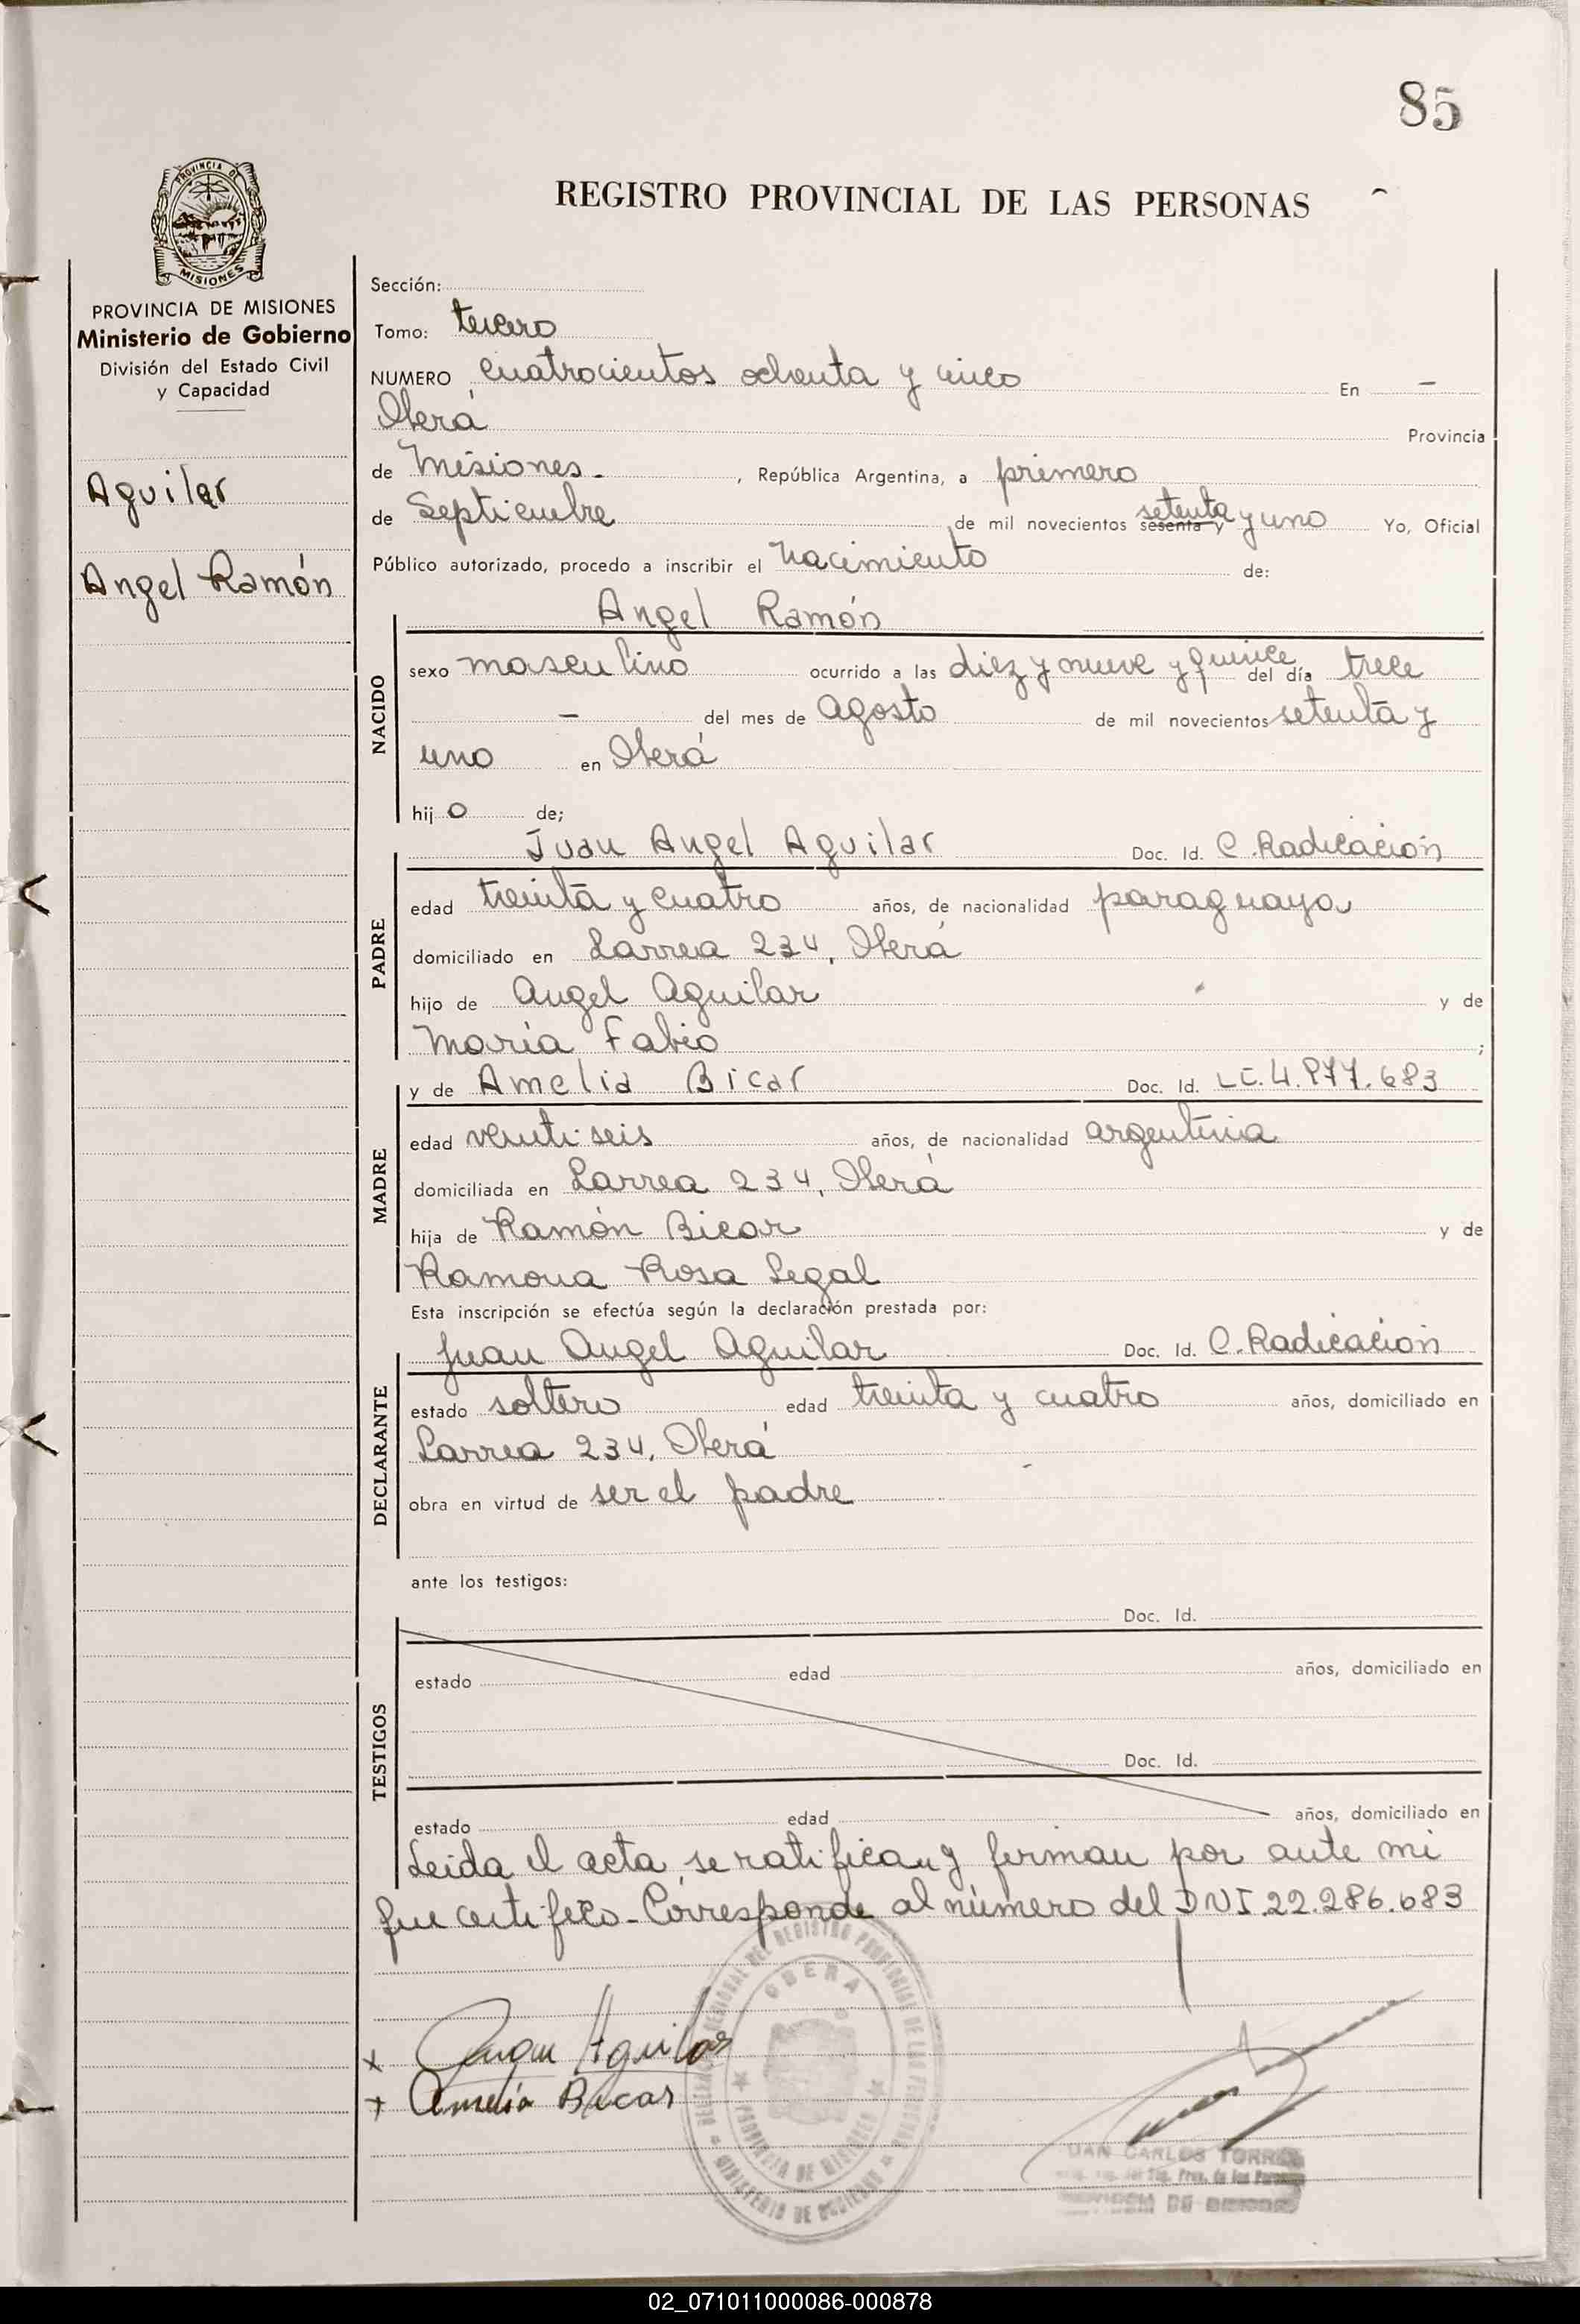 85
PROVINCIA DE
MISIONES
REGISTRO PROVINCIAL DE LAS PERSONAS
PROVINCIA DE MISIONES
Ministerio de Gobierno
División del Estado Civil
y Capacidad
Aguilar
Angel Ramón
Sección:
Tomo: tercero
NUMERO cuatrocientos ochenta y cinco En –
Oberá Provincia
de Misiones - , República Argentina, a primero
de Septiembre de mil novecientos sesenta y setenta y uno Yo, Oficial
Público autorizado, procedo a inscribir el nacimiento de:
NACIDO
Angel Ramón
sexo masculino ocurrido a las diez y nueve y quince del día trece
– del mes de agosto de mil novecientos setenta y
uno en Oberá
hijo de;
PADRE
Juan Angel Aguilar Doc. Id. C. Radicación
edad treinta y cuatro años, de nacionalidad paraguaya
domiciliado en Larrea 234, Oberá
hijo de Angel Aguilar y de
María Fabio ;
MADRE
y de Amelia Bicar Doc. Id. LC. 4.977.683
edad veinti seis años, de nacionalidad argentina
domiciliada en Larrea 234, Oberá
hija de Ramón Bicar y de
Ramona Rosa Legal
Esta inscripción se efectúa según la declaración prestada por:
DECLARANTE
Juan Angel Aguilar Doc. Id. C. Radicación
estado soltero edad treinta y cuatro años, domiciliado en
Larrea 234, Oberá
obra en virtud de ser el padre
ante los testigos:
TESTIGOS
Doc. Id.
estado edad años, domiciliado en
Doc. Id.
estado edad años, domiciliado en
Leida el acta se ratifican y firman por ante mi
que certifico - Corresponde al número del DNI.22.286.683
x Juan Aguilar
+ Amelia Bicar
OBERA
PROVINCIA DE MISIONES
MINISTERIO DE GOBIERNO
JUAN CARLOS TORRES
02_071011000086-000878